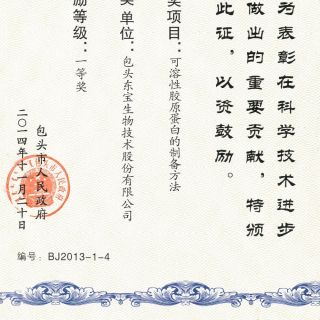 为表彰在科学技术进步
做出的重要贡献，特颁
此证，以资鼓励。
奖项目：可溶性胶原蛋白的制备方法
奖单位：包头东宝生物技术股份有限公司
励等级：一等奖
包头市人民政府
二〇一四年十一月二十日
编号：BJ2013-1-4